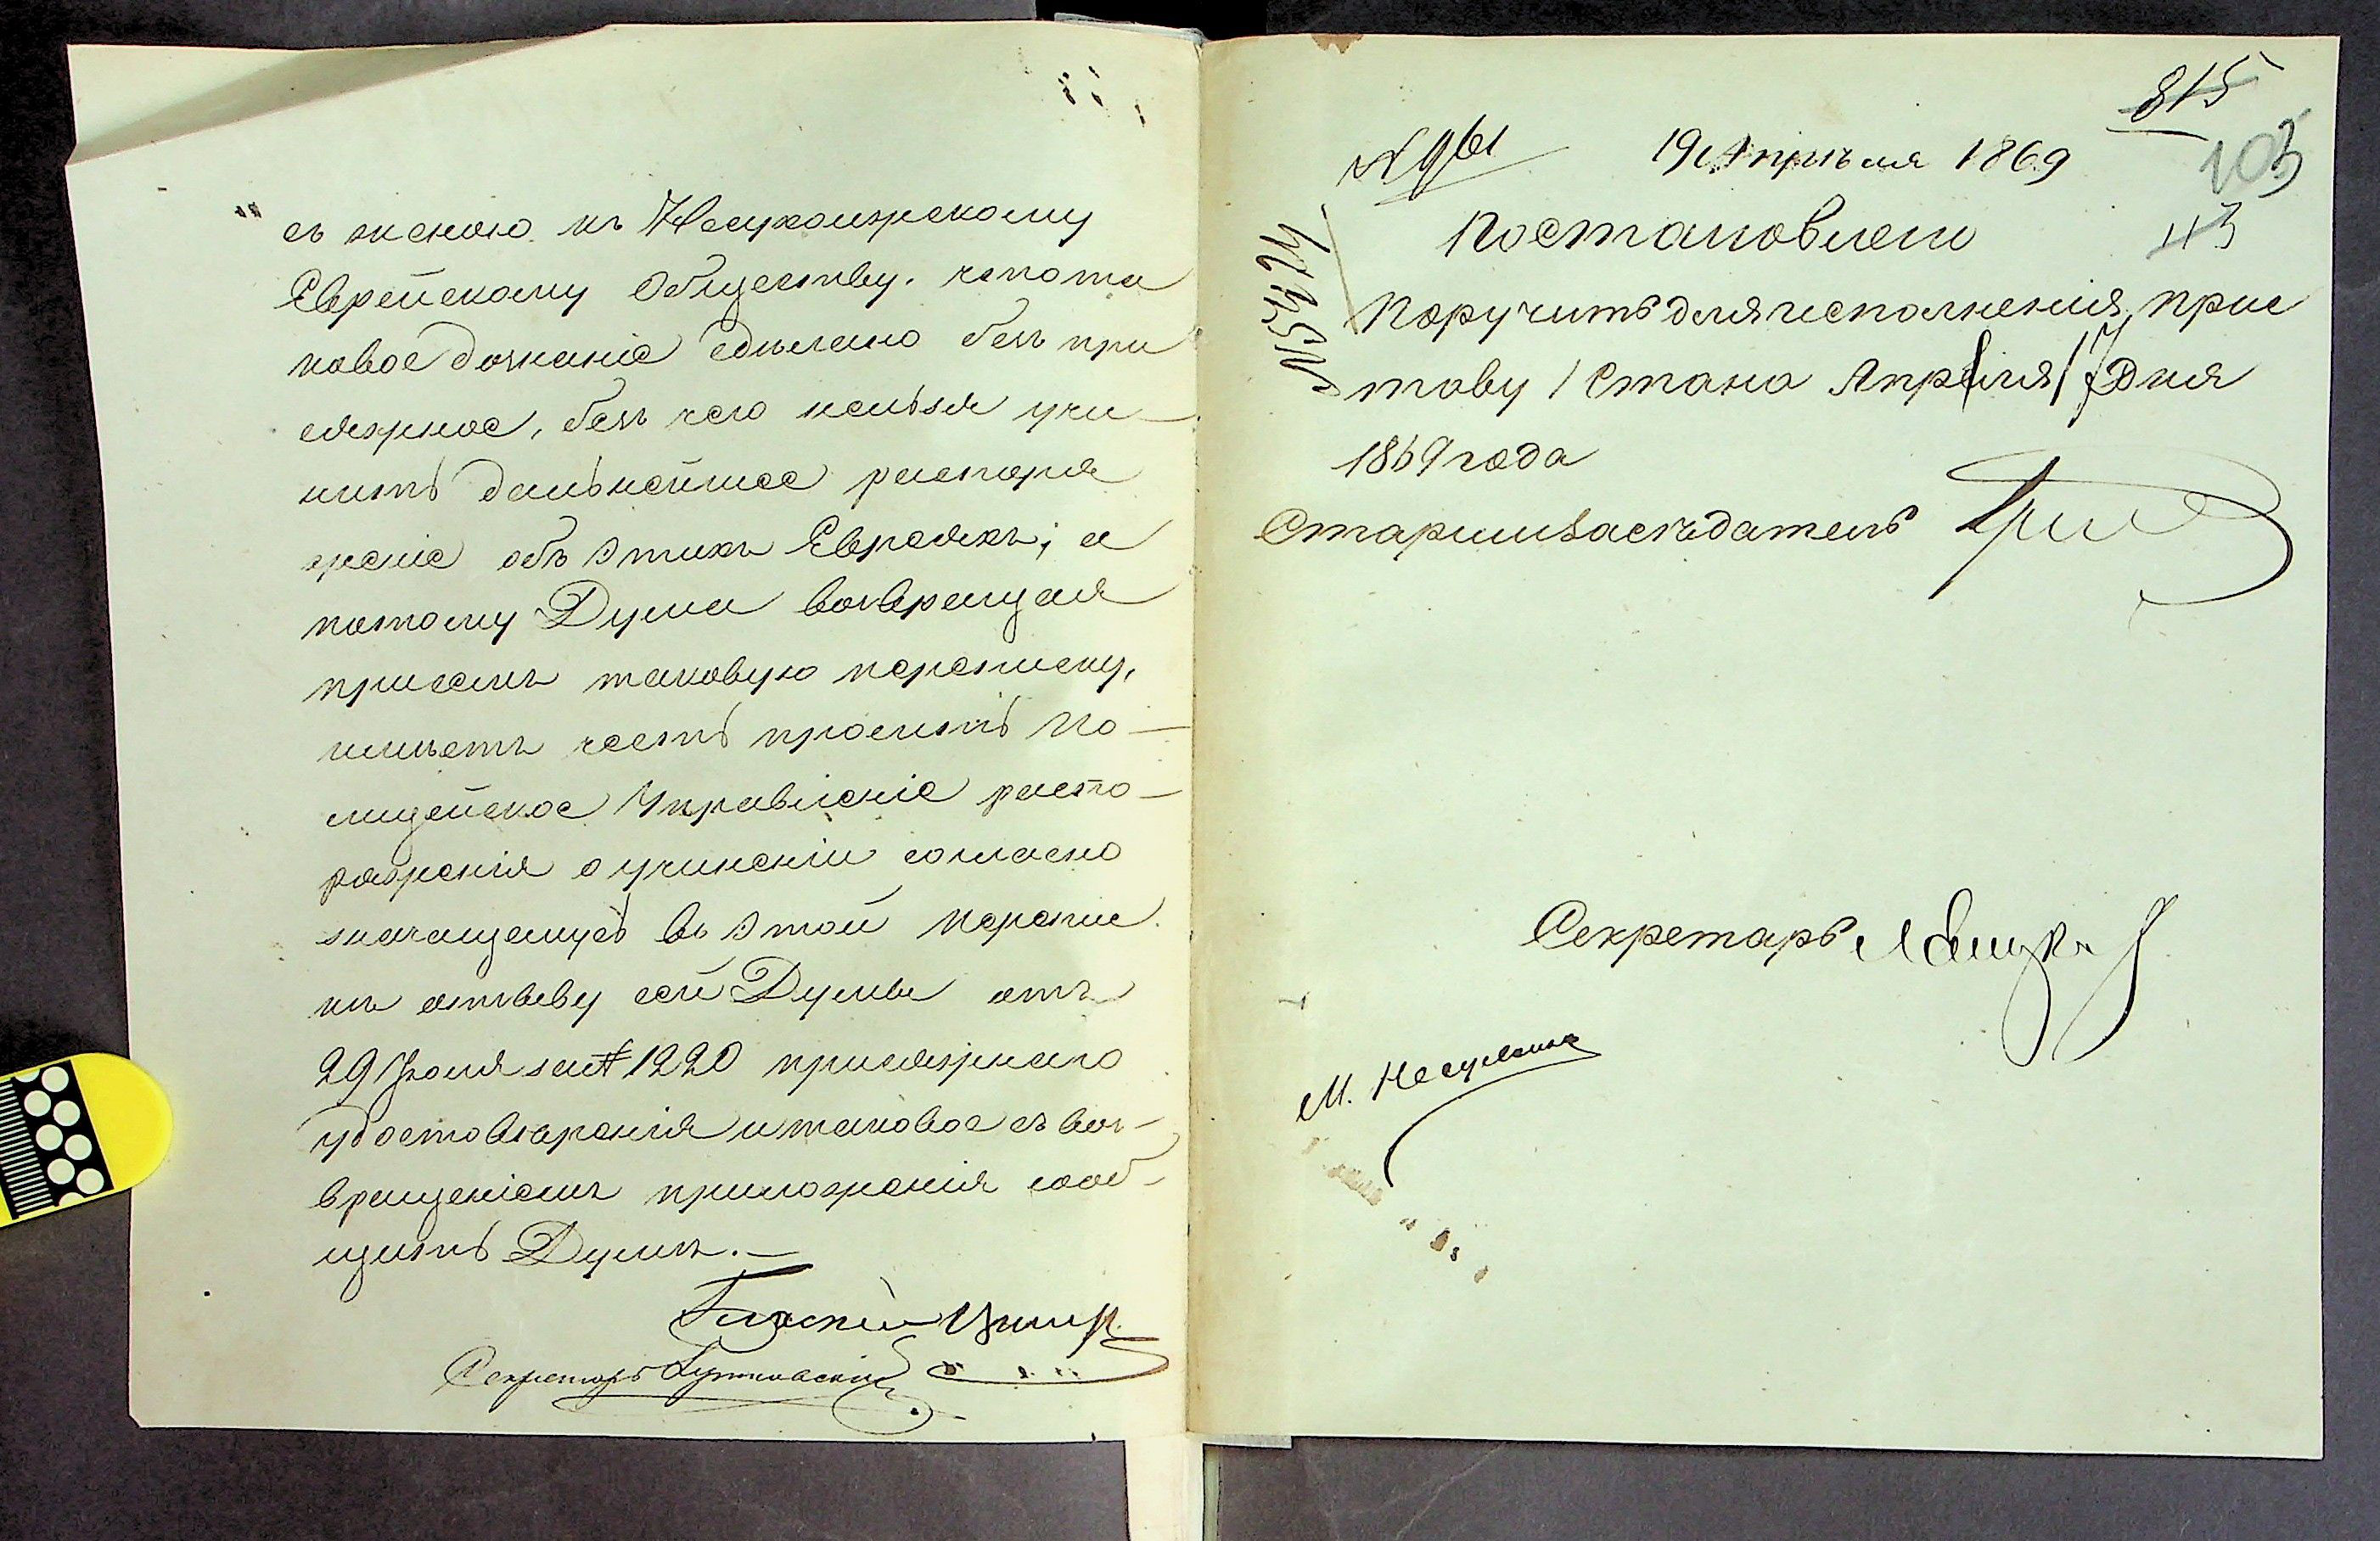 съ женою къ Несухоижскому
Еврейскому Обществу. но та
ковое дознаніе сдѣлано безъ при
сяжное, безъ чего нельзя учи-
нить дальнейшее распоря
женіе объ этихъ Евреяхъ; а
потому Дума возвращая
присемъ таковую переписку,
имѣетъ честь просить По-
лицейское Управленіе распо-
ряженія о учиненіи согласно
значущемусь въ этой перепис
къ отзыву сей Думы отъ
29 Іюля за № 1220 присяжнаго
удостовѣренія и таковое съ воз-
вращеніемъ приложенія сооб-
щить Думѣ.-
Секретарь
815
103
113
19 Апрѣля 1869
Постановлено
Поручить для исполненія прис
таву 1 Стана Апрѣля 17 Дня
1869 года
Старши Засѣдатель
Секретарь
М.